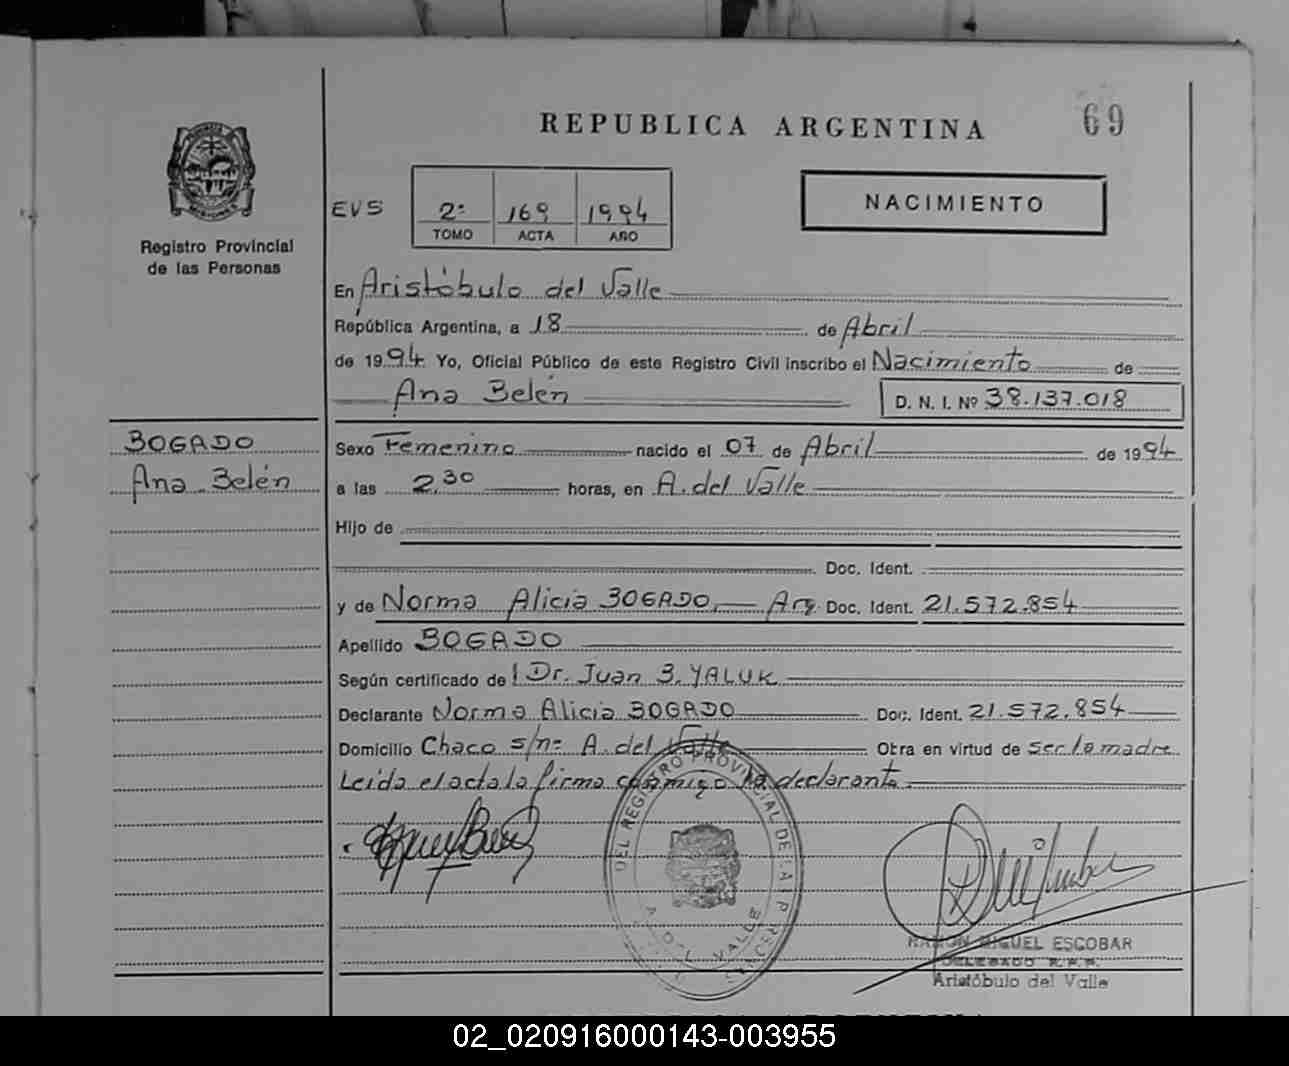 REPUBLICA ARGENTINA
69
PROVINCIA
MISIONES
Registro Provincial
de las Personas
EVS
2º 169 1994
TOMO ACTA AÑO
NACIMIENTO
En Aristóbulo del Valle
República Argentina, a 18 de Abril
de 1994 Yo, Oficial Público de este Registro Civil inscribo el Nacimiento de
Ana Belén D. N. I. Nº 38.137.018
BOGADO
Ana Belén
Sexo Femenino nacido el 07 de Abril de 1994
a las 2,30 horas, en A. del Valle
Hijo de
Doc. Ident.
y de Norma Alicia BOGADO, Arg. Doc. Ident. 21.572.854
Apellido BOGADO
Según certificado de l Dr. Juan B. YALUK
Declarante Norma Alicia BOGADO Doc. Ident. 21.572.854
Domicilio Chaco s/nº A. del Valle Obra en virtud de ser la madre
Leída el acta la firma conmigo la declarante.
DEL REGISTRO PROVINCIAL DE LA P
A. DEL VALLE
RAMON MIGUEL ESCOBAR
DELEGADO R.P.P.
Aristóbulo del Valle
02_020916000143-003955